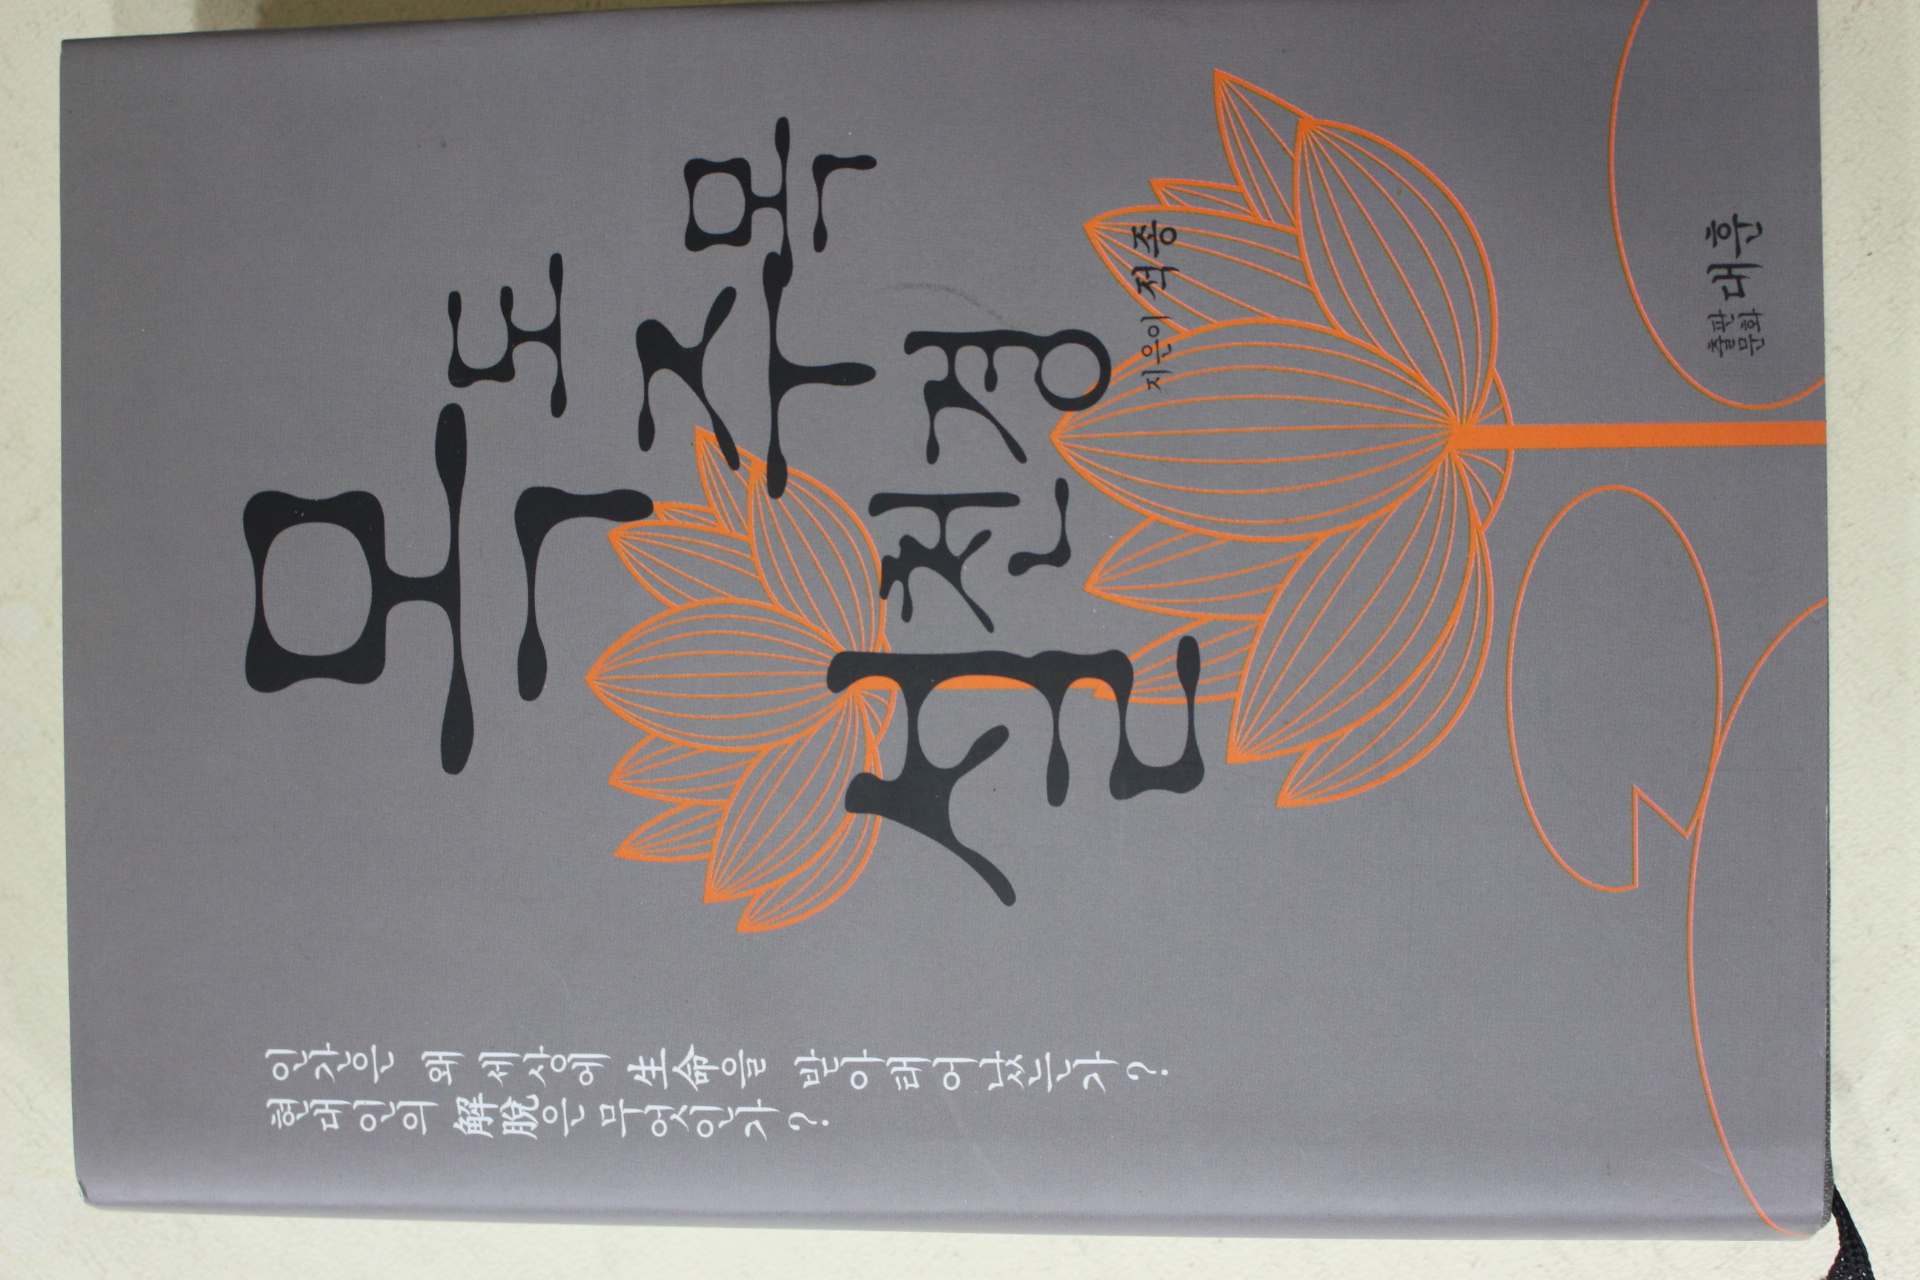 목도
주목
설천경
지은이 적종
인간은 왜 세상에 生命을 받아 태어났는가?
현대인의 解脫은 무엇인가?
출판문화 대훈